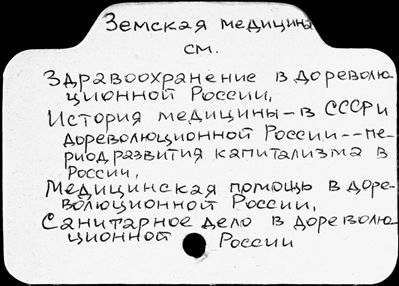 Земская медицина
см.
Здравоохранение в дореволю-
ционной России,
История медицины – в СССР и
дореволюционной России -- пе-
риод развития капитализма в
России,
Медицинская помощь в доре-
волюционной России,
Санитарное дело в дореволю-
ционной России